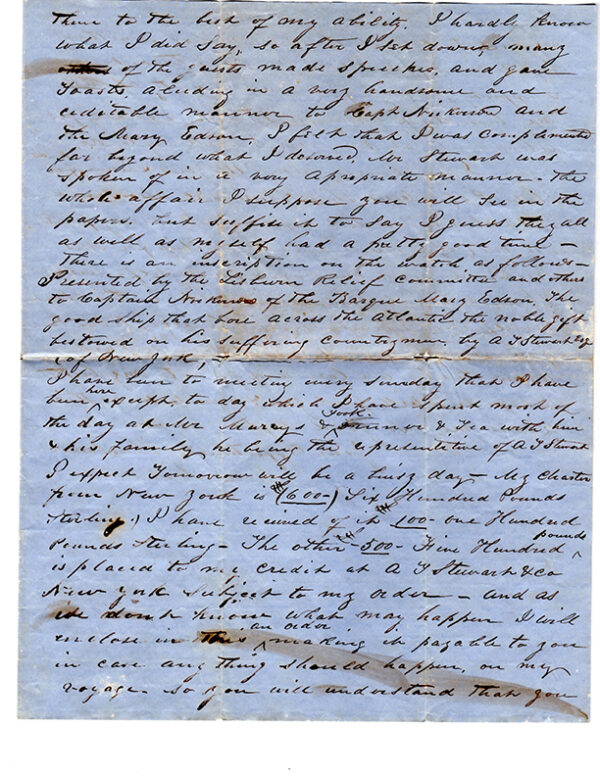 them to the best of my ability, I hardly know
what I did say, so after I set down, many
of the guests made speeches, and gave
Toasts aluding in a very handsome and
creditable manner to Capt Nickerson and
the Mary Edson, I felt that I was complemented
far beyond what I deserved, Mr Stewart was
spoken of in a very apropriate manner - the
whole affair I suppose you will see in the
papers, but suffise it to say I guess they all
as well as myself had a pretty good time -
there is an inscription on the watch as follows -
Presented by the Lisburn Relief Committee and others
to Captain Nickerson of the Barque Mary Edson, The
good ship that bore across the Atlantic the noble gift
bestowed on his suffering countrymen, by A T Stewart Esq
(of New York,
I have been to meeting every sunday that I have
been here except to day which I have spent most of
the day at Mr 's & Took dinner & Tea with him
& his family he being the representitive of A T Stewart
I expect Tomorrow will be a buisy day - My Charter
from New York is (600-) Six Hundred Pounds
Sterling,) I have received of it 100- one Hundred
Pounds Sterling - The other 500- Five Hundred pounds
is placed to my credit at A T Stewart & co
New York Subject to my order - and as
we dont know what may happen I will
enclose in this an order making it payable to you
in case any thing should happen, on my
voyage - so you will understand that you